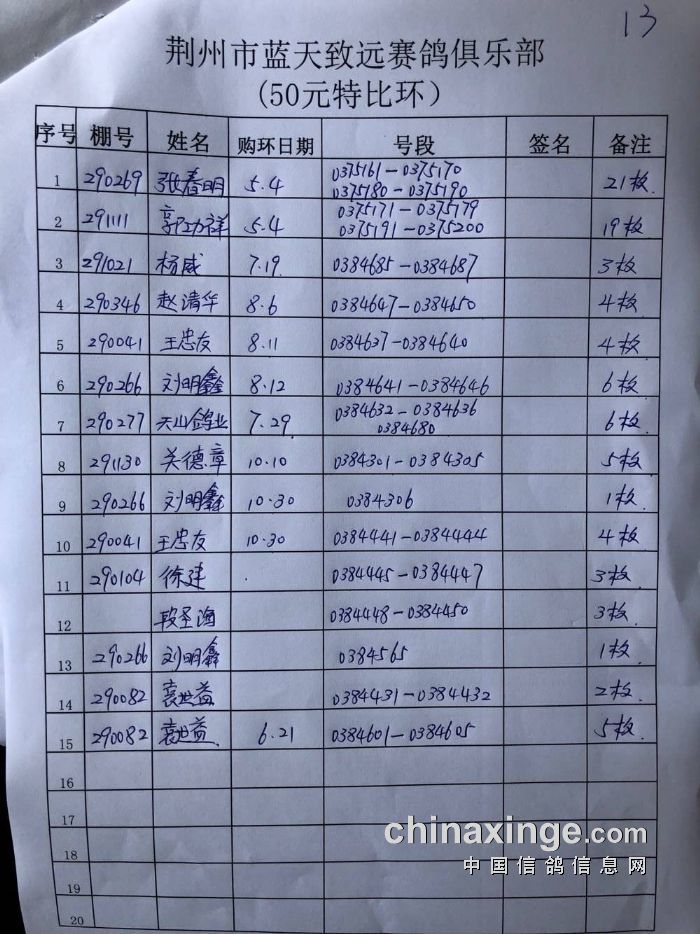 13
荆州市蓝天致远赛鸽俱乐部
(50元特比环)
序号 棚号 姓名 购环日期 号段 签名 备注
1 290269 张春明 5.4 0375161-0375170 21枚
0375180-0375190
2 291111 5.4 0375171-0375179 19枚
0375191-0375200
3 291021 杨威 7.19 0384685-0384687 3枚
4 290346 赵清华 8.6 0384647-0384650 4枚
5 290041 王忠友 8.11 0384637-0384640 4枚
6 290266 刘明鑫 8.12 0384641-0384646 6枚
7 290277 天山鸽业 7.29 0384632-0384636 6枚
0384680
8 291130 关德章 10.10 0384301-0384305 5枚
9 290266 刘明鑫 10.30 0384306 1枚
10 290041 王忠友 10.30 0384441-0384444 4枚
11 290104 徐建 0384445-0384447 3枚
12 段圣海 0384448-0384450 3枚
13 290266 刘明鑫 0384565 1枚
14 290082 袁世益 0384431-0384432 2枚
15 290082 袁世益 6.21 0384601-0384605 5枚
16
17
18
19
20
chinaxinge.com
中国信鸽信息网